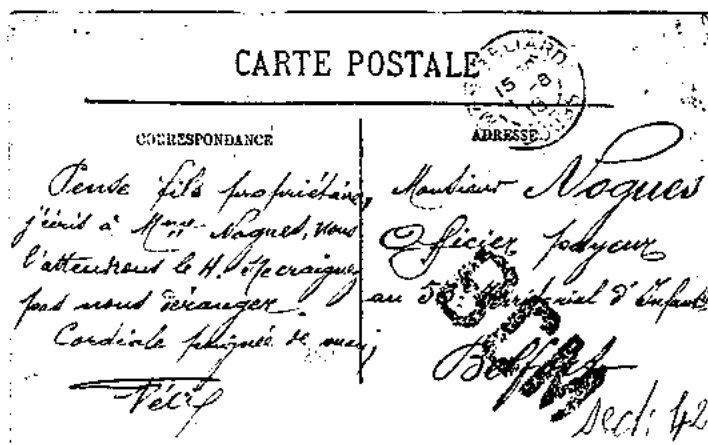 CARTE POSTALE
CORRESPONDANCE
Pense fils propriétaire,
j'écris à Mme Nogues, nous
l'attendrons le 4. Ne craignez
pas nous déranger.
Cordiale poignée de main,
ADRESSE
Monsieur Nogues
Officier payeur
au Territorial d'Infant
Belfort
Sect: 42